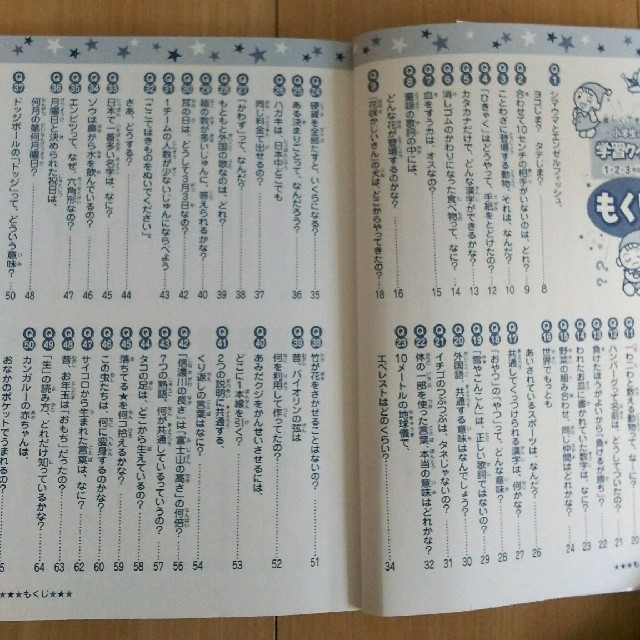 学習クイズ
1・2・3年
もくじ
Q1 シマウマとエンゼルフィッシュ、
ヨコじま? タテじま? 8
Q2 合わせて10センチの相手がいないのは、どれ? 9
Q3 ことわざに登場する動物、それは、なんだ? 10
Q4 「ひきゃく」はどうやって、手紙をとどけたの? 12
Q5 カタカナだけで、どんな漢字ができるかな? 13
Q6 消しゴムのかわりになった食べ物って、なに? 14
Q7 血をすうカは、オス?なの? 15
Q8 童謡の歌詞の中には、
どんな花が登場するのかな? 16
Q9 『花咲かじいさん』の犬は、どこからやってきたの? 18
Q11 20
Q12 ハンバーグって名前は、どうしてついたの? 21
Q13 負けたほうがよいから「負けるが勝ち」? 22
Q14 われたお皿に書かれていた数字は、なに? 23
Q15 野菜の組み合わせ、同じ仲間はどれかな? 24
Q16 世界でもっとも
あいされているスポーツは、なんだ? 26
Q17 共通してくっつけられる漢字は、何かな? 27
Q18 「おやつ」の「やつ」って、どんな意味? 28
Q19 『雪やこんこん』は、正しい歌詞ではないの? 29
Q20 外国語、共通する意味はなんでしょう? 30
Q21 イチゴのつぶつぶは、タネじゃないの? 31
Q22 体の一部を使った言葉、本当の意味はどれかな? 32
Q23 10メートルの地球儀で、
エベレストはどのくらい? 34
Q24 硬貨を全部たすと、いくらになる? 35
Q25 ある決まりごとって、なんだろう? 36
Q26 ハガキは、日本中どこでも
同じ料金で出せるの? 37
Q27 「かわず」って、なんだ? 38
Q28 もともと外国の歌なのは、どれ? 39
Q29 指の数が多いじゅんに、答えられるかな? 40
Q30 耳の日は、どうして3月3日なの? 42
Q31 1チームの人数が少ないじゅんにならべよう 43
Q32 「ここではきものをぬいでください」。
さあ、どうする? 44
Q33 日本で一番多い名字は、なに? 45
Q34 ゾウは鼻から水を飲んでいるの? 46
Q35 エンピツって、なぜ、六角形なの? 47
Q36 月曜日と決められた祝日は、
何月の第何月曜日? 48
Q37 ドッジボールの「ドッジ」って、どういう意味? 50
Q38 竹が花をさかせることはないの? 51
Q39 昔、バイオリンの弦は
何を利用して作ってたの? 52
Q40 あみだクジをかんせいさせるには、
どこに1本線を引く? 53
Q41 2つの説明に共通する、
くり返しの言葉はなに? 54
Q42 「信濃川の長さ」は「富士山の高さ」の何倍? 56
Q43 7つの熟語、何が共通しているっていうの? 57
Q44 タコの足は、どこから生えているの? 58
Q45 落ちてる★を何コ拾えるかな? 59
Q46 この虫たちは、何に変身するのかな? 60
Q47 サイコロから生まれた言葉は、なに? 62
Q48 昔、お年玉は「おもち」だったの? 63
Q49 「生」の読み方、どれだけ知っているかな? 64
Q50 カンガルーの赤ちゃんは、
おなかのポケットでうまれるの?
★★★もくじ★★★